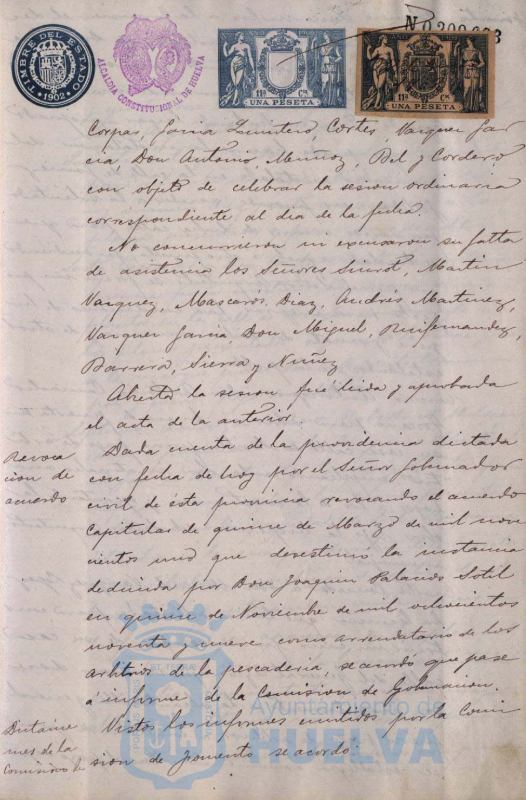 TIMBRE DEL ESTADO
1902
ALCALDIA CONSTITUCIONAL DE HUELVA
11ª Cª
UNA PESETA
11ª Cª
UNA PESETA
Corpas, Garcia Quintero, Cortes Vazquez Gar
cia, Don Antonio Muñoz, Bel y Cordero,
con objeto de celebrar la sesion ordinaria
correspondiente al dia de la fecha.
No concurrieron ni excusaron su falta
de asistencia los Señores Martin
Vazquez, Mascarós, Diaz, Andrés Martinez,
Vazquez Garcia, Don Miguel, Ruifernandez,
Barrera, Sierra y Nuñez
Abierta la sesion fué leida y aprobada
el acta de la anterior.
Revoca
cion de
acuerdo
Dada cuenta de la providencia dictada
con fecha de hoy por el Señor Gobernador
civil de ésta provincia revocando el acuerdo
Capitular de quince de Marzo de mil nove
cientos uno que desestimó la instancia
deducida por Don Joaquin Palacios Sotil
en quince de Noviembre de mil ochocientos
noventa y nueve como arrendatario de los
arbitrios de la pescaderia, se acordó que pase
á informe de la Comision de Gobernacion.
Dictáme
nes de la
Comision
Vistos los informes emitidos por la Comi
sion de fomento se acordó:
Ayuntamiento de
HUELVA